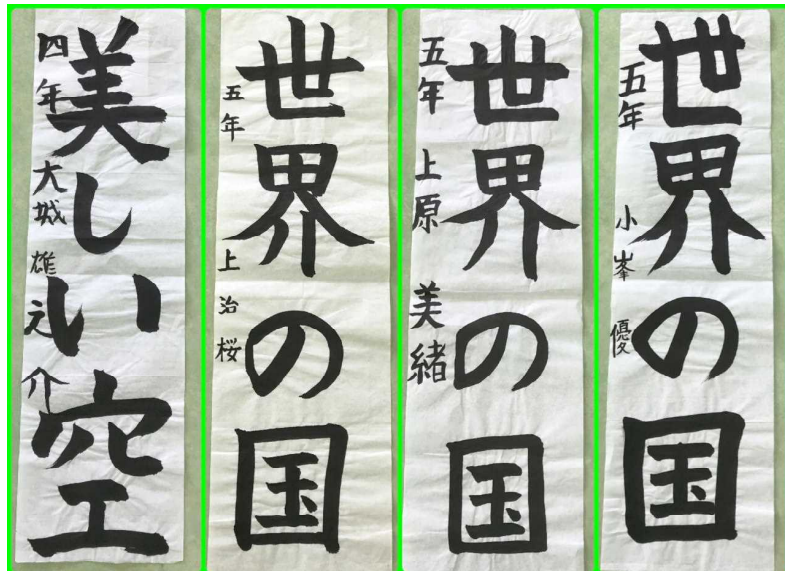 美しい空
四年 大城 雄之介
世界の国
五年 上治桜
世界の国
五年 上原 美緒
世界の国
五年 小峯 優